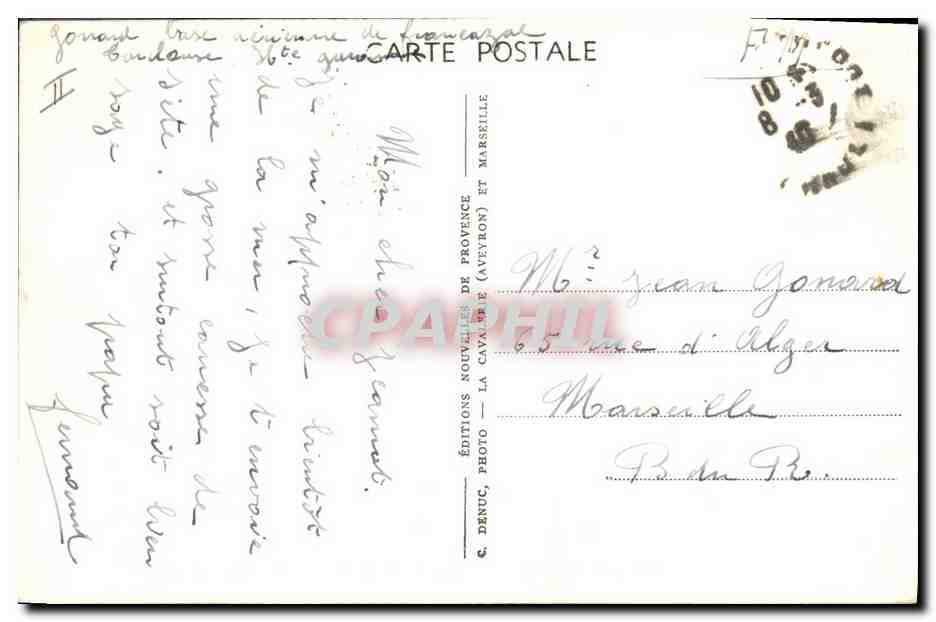 Gonard base aérienne de francazal
Toulouse Hte garonne
CARTE POSTALE
F
10
3
8
40
Mon cher Jeannot.
je m'approche bientôt
de la mer, je t'envoie
une grosse caresse de
sète. et surtout soit bien
sage ton papa
Fernand
ÉDITIONS NOUVELLES DE PROVENCE
C. DENUC, PHOTO — LA CAVALERIE (AVEYRON) ET MARSEILLE
Mr Jean Gonard
65 rue d'Alger
Marseille
B du R.
CPAPHIL